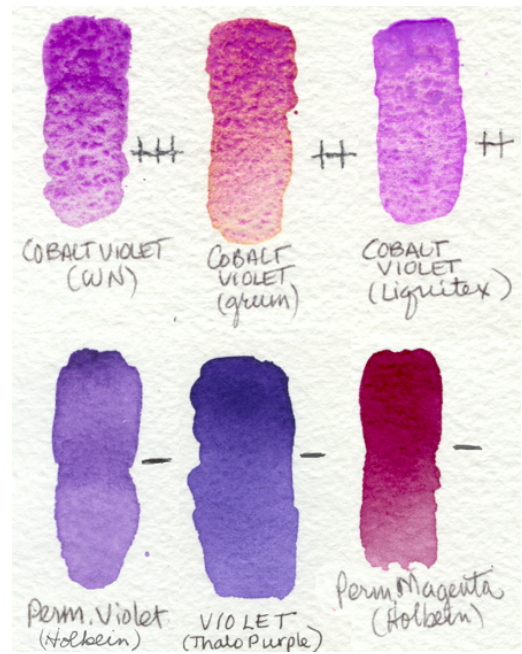 +++
++
++
COBALT VIOLET
(WN)
COBALT
VIOLET
(grum)
COBALT
VIOLET
(Liquitex)
-
-
-
Perm. Violet
(Holbein)
VIOLET
(Thalo Purple)
Perm. Magenta
(Holbein)